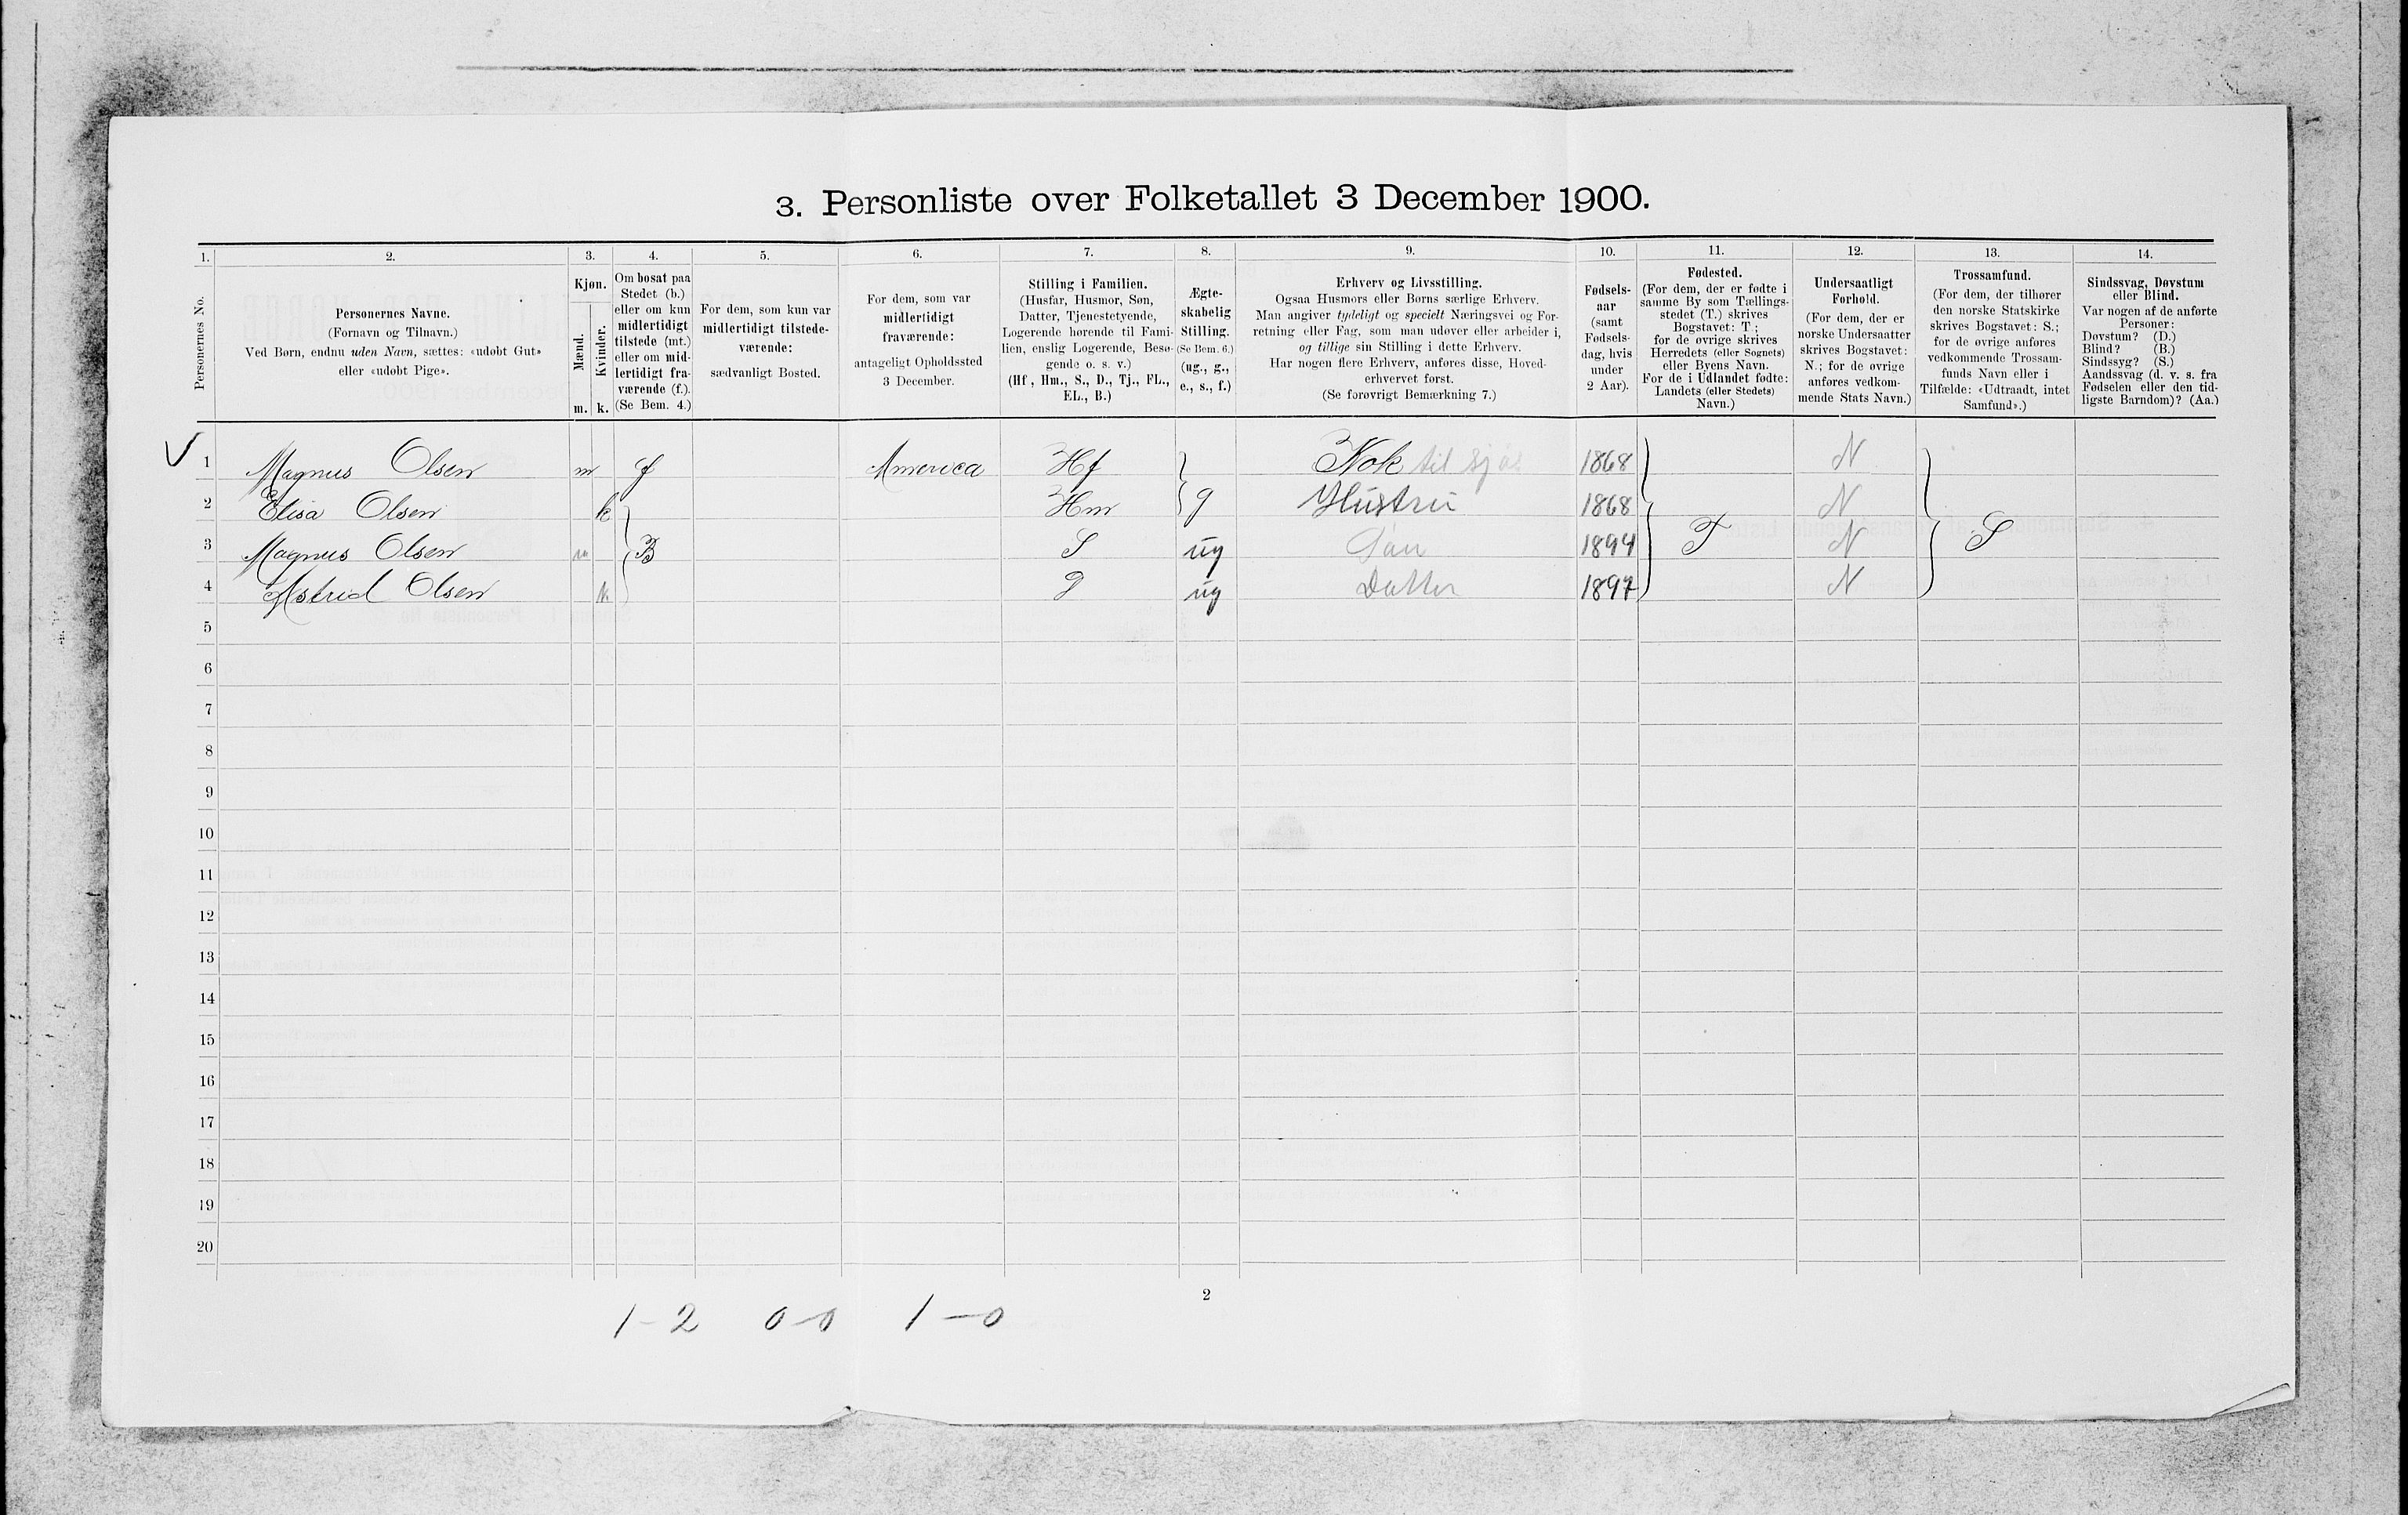 3. Personliste over Folketallet 3 December 1900.
1. 2. 3. 4. 5. 6. 7. 8. 9. 10. 11. 12. 13. 14.
Personernes No.
Personernes Navne.
(Fornavn og Tilnavn.)
Ved Børn, endnu uden Navn, sættes: «udøbt Gut»
eller «udøbt Pige».
Kjøn.
Mænd.
Kvinder.
m. k.
Om bosat paa
Stedet (b.)
eller om kun
midlertidigt
tilstede (mt.)
eller om mid-
lertidigt fra-
værende (f.).
(Se Bem. 4.)
For dem, som kun var
midlertidigt tilstede-
værende:
sædvanligt Bosted.
For dem, som var
midlertidigt
fraværende:
antageligt Opholdssted
3 December.
Stilling i Familien.
(Husfar, Husmor, Søn,
Datter, Tjenestetyende,
Logerende hørende til Fami-
lien, enslig Logerende, Besø-
gende o. s. v.)
(Hf., Hm., S., D., Tj., FL.,
EL., B.)
Ægte-
skabelig
Stilling.
(Se Bem. 6.)
(ug., g.,
e., s., f.)
Erhverv og Livsstilling.
Ogsaa Husmors eller Børns særlige Erhverv.
Man angiver tydeligt og specielt Næringsvei og For-
retning eller Fag, som man udøver eller arbeider i,
og tillige sin Stilling i dette Erhverv.
Har nogen flere Erhverv, anføres disse, Hoved-
erhvervet først.
(Se forøvrigt Bemærkning 7.)
Fødsels-
aar
(samt
Fødsels-
dag, hvis
under
2 Aar).
Fødested.
(For dem, der er fødte i
samme By som Tællings-
stedet (T.) skrives
Bogstavet: T.;
for de øvrige skrives
Herredets (eller Sognets)
eller Byens Navn.
For de i Udlandet fødte:
Landets (eller Stedets)
Navn.)
Undersaatligt
Forhold.
(For dem, der er
norske Undersaatter
skrives Bogstavet:
N.; for de øvrige
anføres vedkom-
mende Stats Navn.)
Trossamfund.
(For dem, der tilhører
den norske Statskirke
skrives Bogstavet: S.;
for de øvrige anføres
vedkommende Trossam-
funds Navn eller i
Tilfælde: «Udtraadt, intet
Samfund».)
Sindssvag, Døvstum
eller Blind.
Var nogen af de anførte
Personer:
Døvstum? (D.)
Blind? (B.)
Sindssyg? (S.)
Aandssvag (d. v. s. fra
Fødselen eller den tid-
ligste Barndom)? (Aa.)
1 Magnus Olsen m f America Hf Kok til sjøs 1868 N
2 Elisa Olsen k Hm g Hustru 1868 N
3 Magnus Olsen m B S ug Søn 1894 T N S
4 Astrid Olsen k D ug Datter 1897 N
5
6
7
8
9
10
11
12
13
14
15
16
17
18
19
20
2
1-2 0-0 1-0